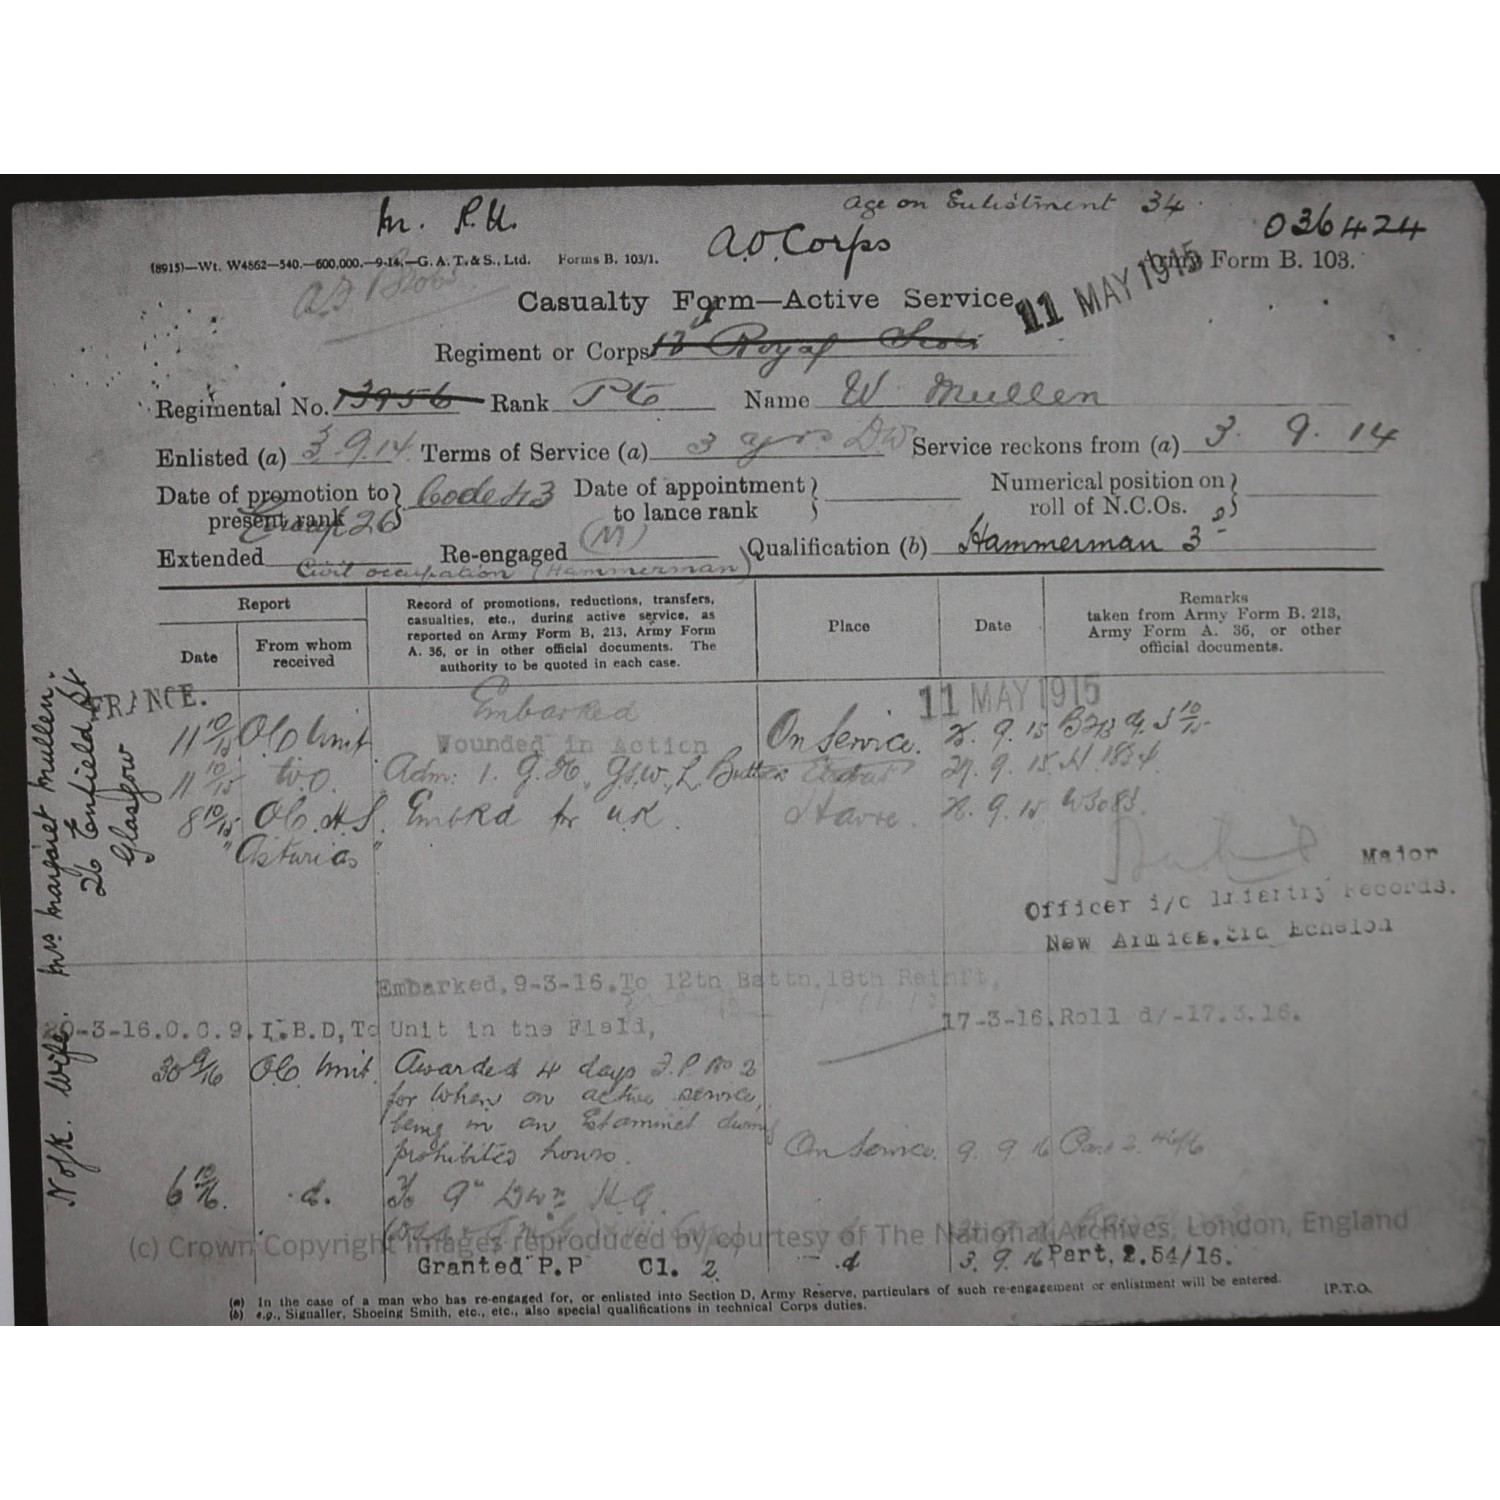 Age on Enlistment 34
M. R.U.
036424
A.O. Corps
(8915)—Wt. W4862—540.—600,000.—9-14.—G. A. T. & S., Ltd. Forms B. 103/1.
Army Form B. 103.
11 MAY 1915
Casualty Form—Active Service.
Regiment or Corps 12 Royal Scots
Regimental No. 13956 Rank Pte Name W Mullen
Enlisted (a) 3.9.14 Terms of Service (a) 3 yrs DW Service reckons from (a) 3. 9. 14
Date of promotion to present rank } Code 43 Date of appointment to lance rank } Numerical position on roll of N.C.Os. }
Group 26
Extended Re-engaged (M) Qualification (b) Hammerman 3
Civil occupation (Hammerman)
Report
Date
From whom received
Record of promotions, reductions, transfers,
casualties, etc., during active service, as
reported on Army Form B, 213, Army Form
A. 36, or in other official documents. The
authority to be quoted in each case.
Place
Date
Remarks
taken from Army Form B. 213,
Army Form A. 36, or other
official documents.
FRANCE. Embarked 11 MAY 1915
11 10/15 O/C Unit Wounded in Action On Service. 9. 15
11 10/15 Adm: 1. G.H. G.S.W. L. Buttock 9. 15
8 10/15 O.C. H.S. Embkd for U.K. Havre. 9. 15 W3083.
"Asturias"
Major
Officer i/c Infantry Records.
New Armies, 3rd Echelon
Embarked, 9-3-16. To 12th Battn. 18th Reinft,
20-3-16. O.C. 9. I.B.D, To Unit in the Field, 17-3-16. Roll d/-17.3.16.
30 9/16 O.C. Unit. Awarded 4 days F.P. No 2
for When on active service,
being in an Estaminet during
prohibited hours. On Service. 9. 9. 16
6 10/16 d. To 9" Dwn H.Q.
Granted P.P Cl. 2 d 3. 9. 16 Part, 2.54/16.
(c) Crown Copyright Images reproduced by courtesy of The National Archives, London, England
(a) In the case of a man who has re-engaged for, or enlisted into Section D, Army Reserve, particulars of such re-engagement or enlistment will be entered.
(b) e.g., Signaller, Shoeing Smith, etc., etc., also special qualifications in technical Corps duties.
[P.T.O.
N of K. Wife. Mrs Margaret Mullen.
26 Enfield St
Glasgow